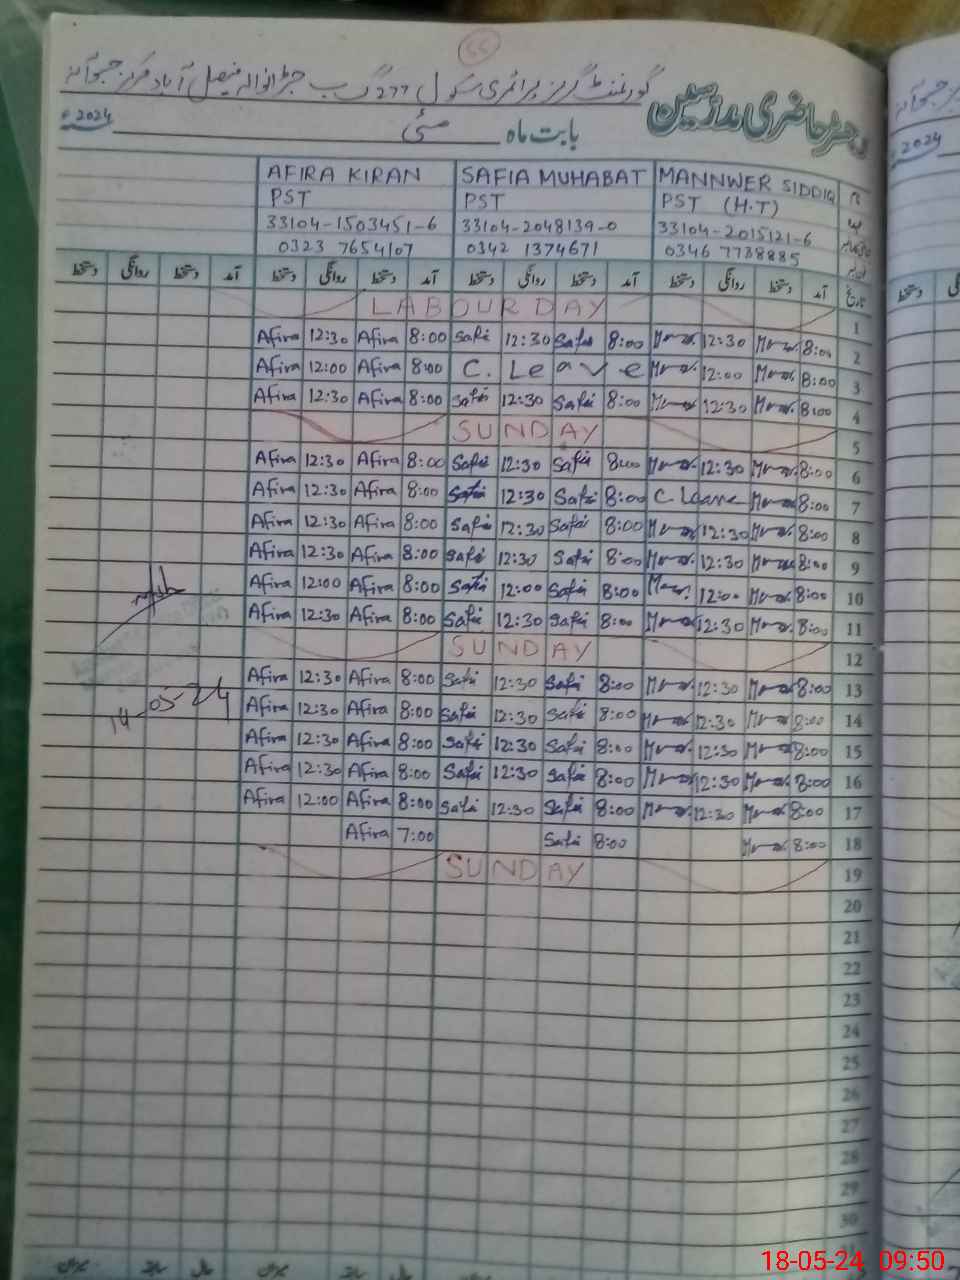 گورنمنٹ گرلز پرائمری سکول 277 گ ب جڑانوالہ فیصل آباد مرکز
رجسٹر حاضری مدرسین
بابت ماہ مئی 2024ء
AFIRA KIRAN SAFIA MUHABAT MANNWER SIDDIQ نام
PST PST PST (H.T)
33104-1503451-6 33104-2048139-0 33104-2015121-6
0323 7654107 0342 1374671 0346 7738885
دستخط روانگی دستخط آمد دستخط روانگی دستخط آمد دستخط روانگی دستخط آمد دستخط روانگی دستخط آمد تاریخ
LABOUR DAY 1
Afira 12:30 Afira 8:00 Safi 12:30 Safi 8:00 12:30 8:00 2
Afira 12:00 Afira 8:00 C. Leave 12:00 8:00 3
Afira 12:30 Afira 8:00 Safi 12:30 Safi 8:00 12:30 8:00 4
SUNDAY 5
Afira 12:30 Afira 8:00 Safi 12:30 Safi 8:00 12:30 8:00 6
Afira 12:30 Afira 8:00 Safi 12:30 Safi 8:00 C. Leave 8:00 7
Afira 12:30 Afira 8:00 Safi 12:30 Safi 8:00 12:30 8:00 8
Afira 12:30 Afira 8:00 Safi 12:30 Safi 8:00 12:30 8:00 9
Afira 12:00 Afira 8:00 Safi 12:00 Safi 8:00 12:00 8:00 10
Afira 12:30 Afira 8:00 Safi 12:30 Safi 8:00 12:30 8:00 11
SUNDAY 12
Afira 12:30 Afira 8:00 Safi 12:30 Safi 8:00 12:30 8:00 13
14-05-24 Afira 12:30 Afira 8:00 Safi 12:30 Safi 8:00 12:30 8:00 14
Afira 12:30 Afira 8:00 Safi 12:30 Safi 8:00 12:30 8:00 15
Afira 12:30 Afira 8:00 Safi 12:30 Safi 8:00 12:30 8:00 16
Afira 12:00 Afira 8:00 Safi 12:30 Safi 8:00 12:30 8:00 17
Afira 7:00 Safi 8:00 8:00 18
SUNDAY 19
20
21
22
23
24
25
26
27
28
29
30
2024
18-05-24 09:50